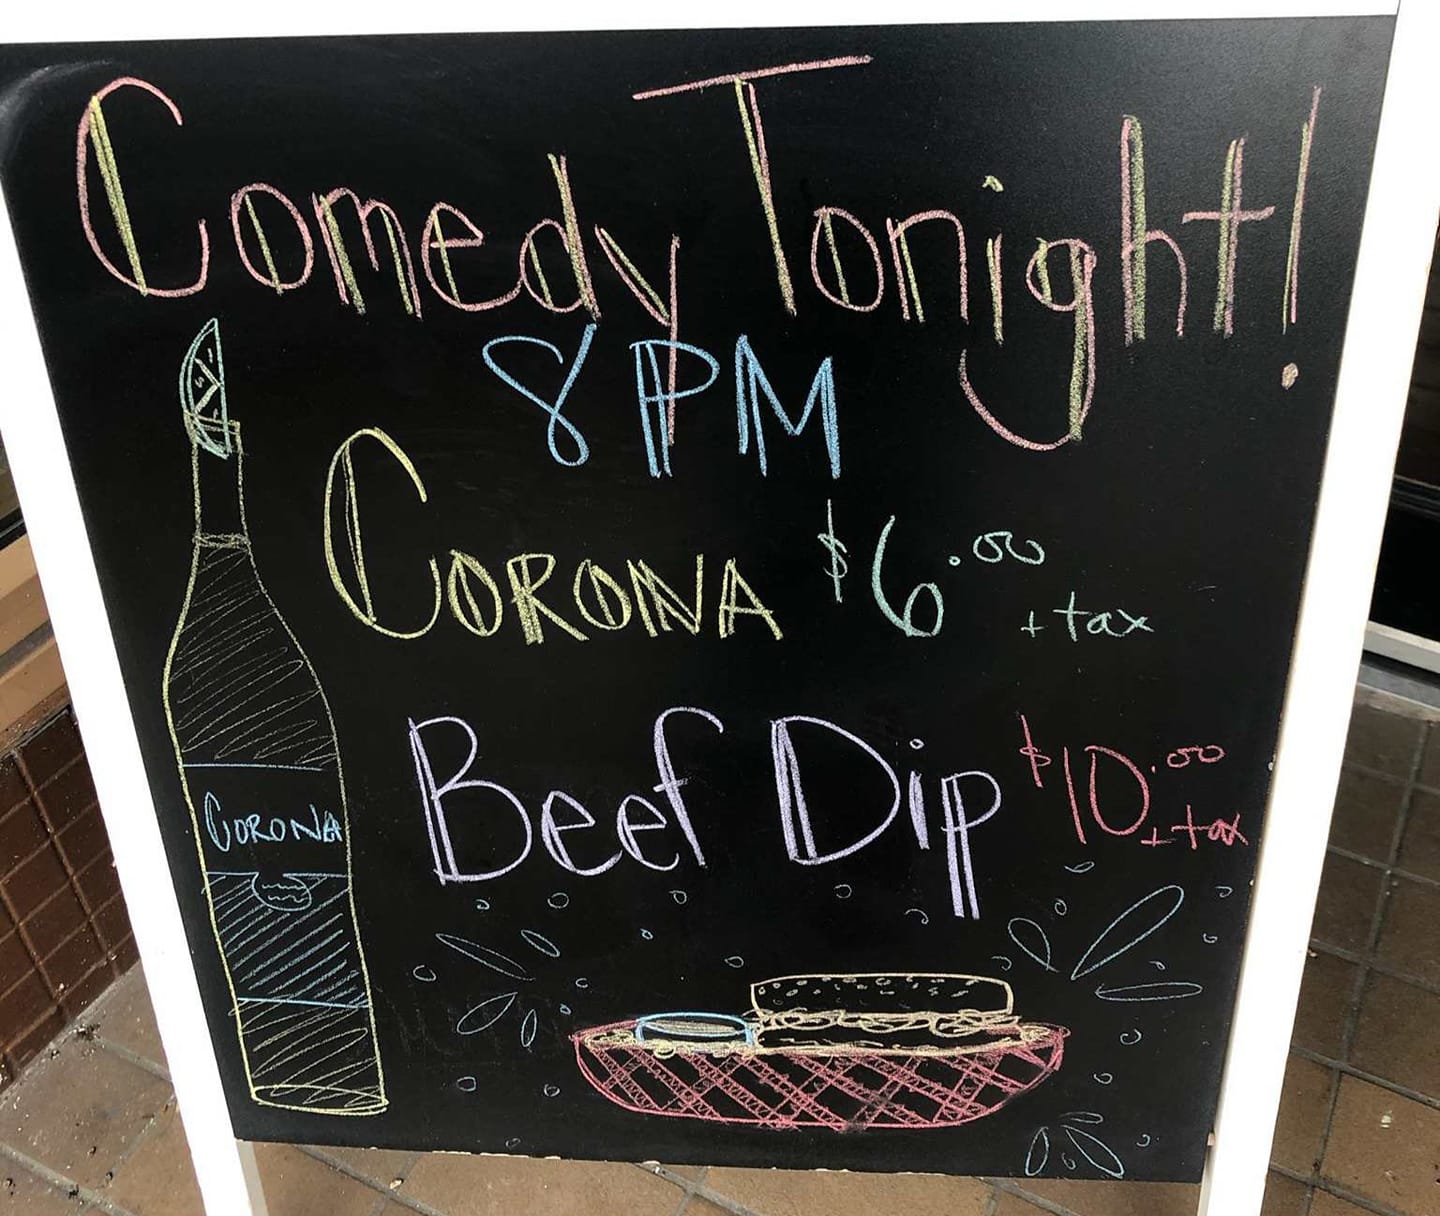 Comedy Tonight!
8PM
CORONA $6.00
+ tax
Beef Dip $10.00
+ tax
CORONA